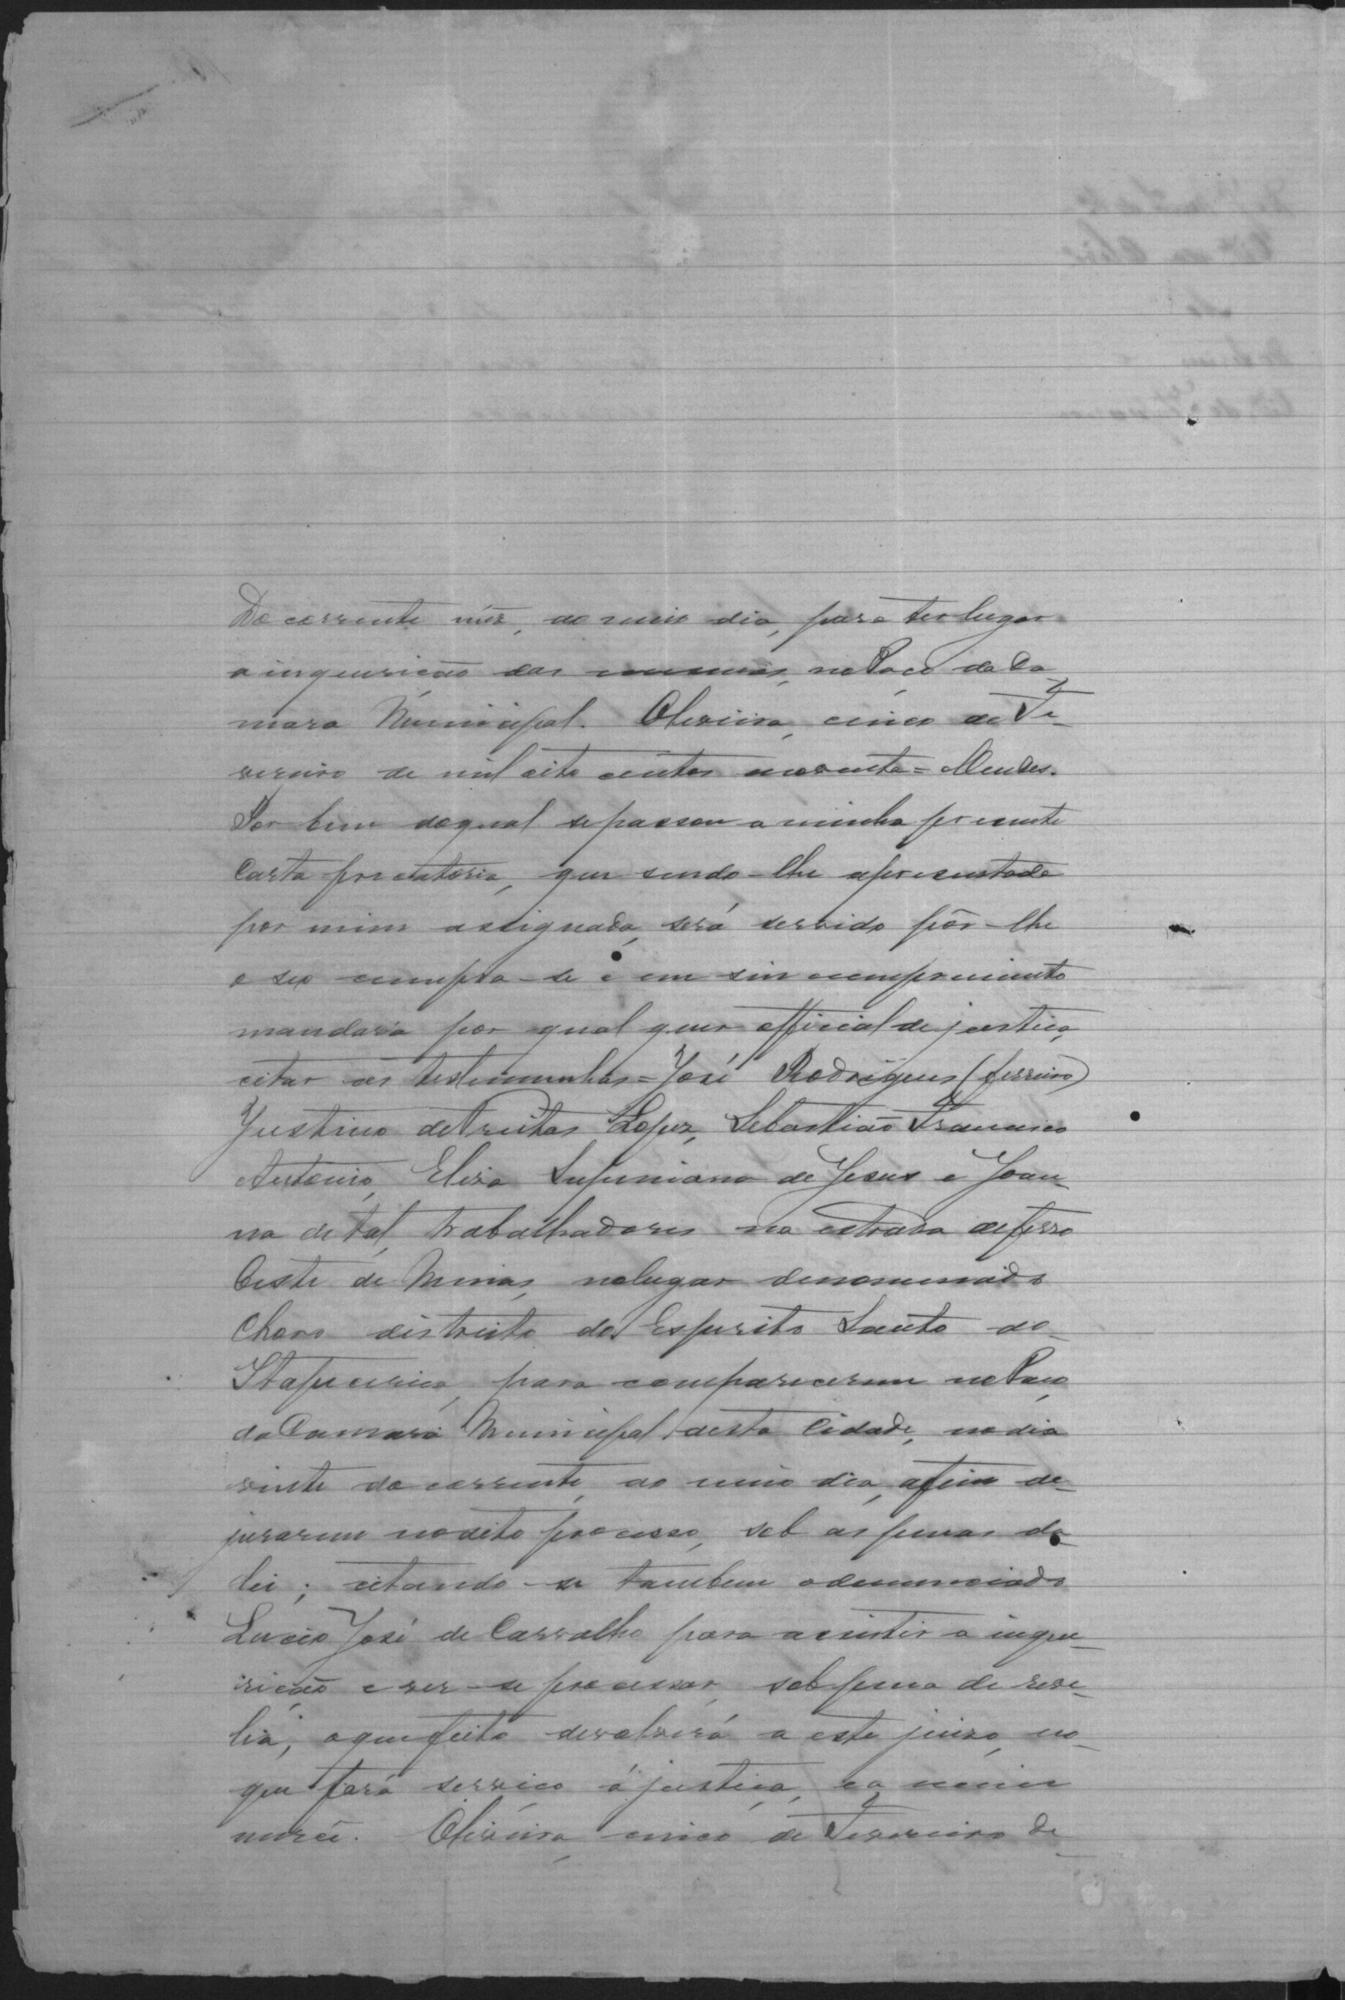 Do corrente mez, ao meio dia, para ter lugar
a inquirição das mesmas, no Paço da Ca
mara Municipal. Oliveira, cinco de Fe-
vereiro de mil oito centos noventa = Mendes.
Por bem do qual se passou a minha presente
Carta precatoria, que sendo-lhe apresentada
por mim assignada, será servido pôr-lhe
o seu cumpra-se e em seu comprimento
mandará por qual quer official de justiça,
citar as testemunhas = José Rodrigues (ferreiro)
Justino de Freitas Lopes, Sebastião Francisco
Antonio, Elisa de Jesus e Joan-
na de tal, trabalhadores na estrada de ferro
Oeste de Minas, no lugar denominado
Choro districto do Espirito Santo do
Itapecirica, para comparecerem no Paço
da Camara Municipal desta Cidade, no dia
vinte do corrente, ao meio dia, afim de-
jurarem no dito processo, sob as penas da
lei; citando-se tambem o denunciado
Lucio José de Carvalho para assistir a inque-
rição e ver-se processar, sob pena de reve-
lia; o que feito devolverá a este juizo, no-
que fará serviço á justiça, e a mim
mercê. Oliveira, cinco de Fevereiro de